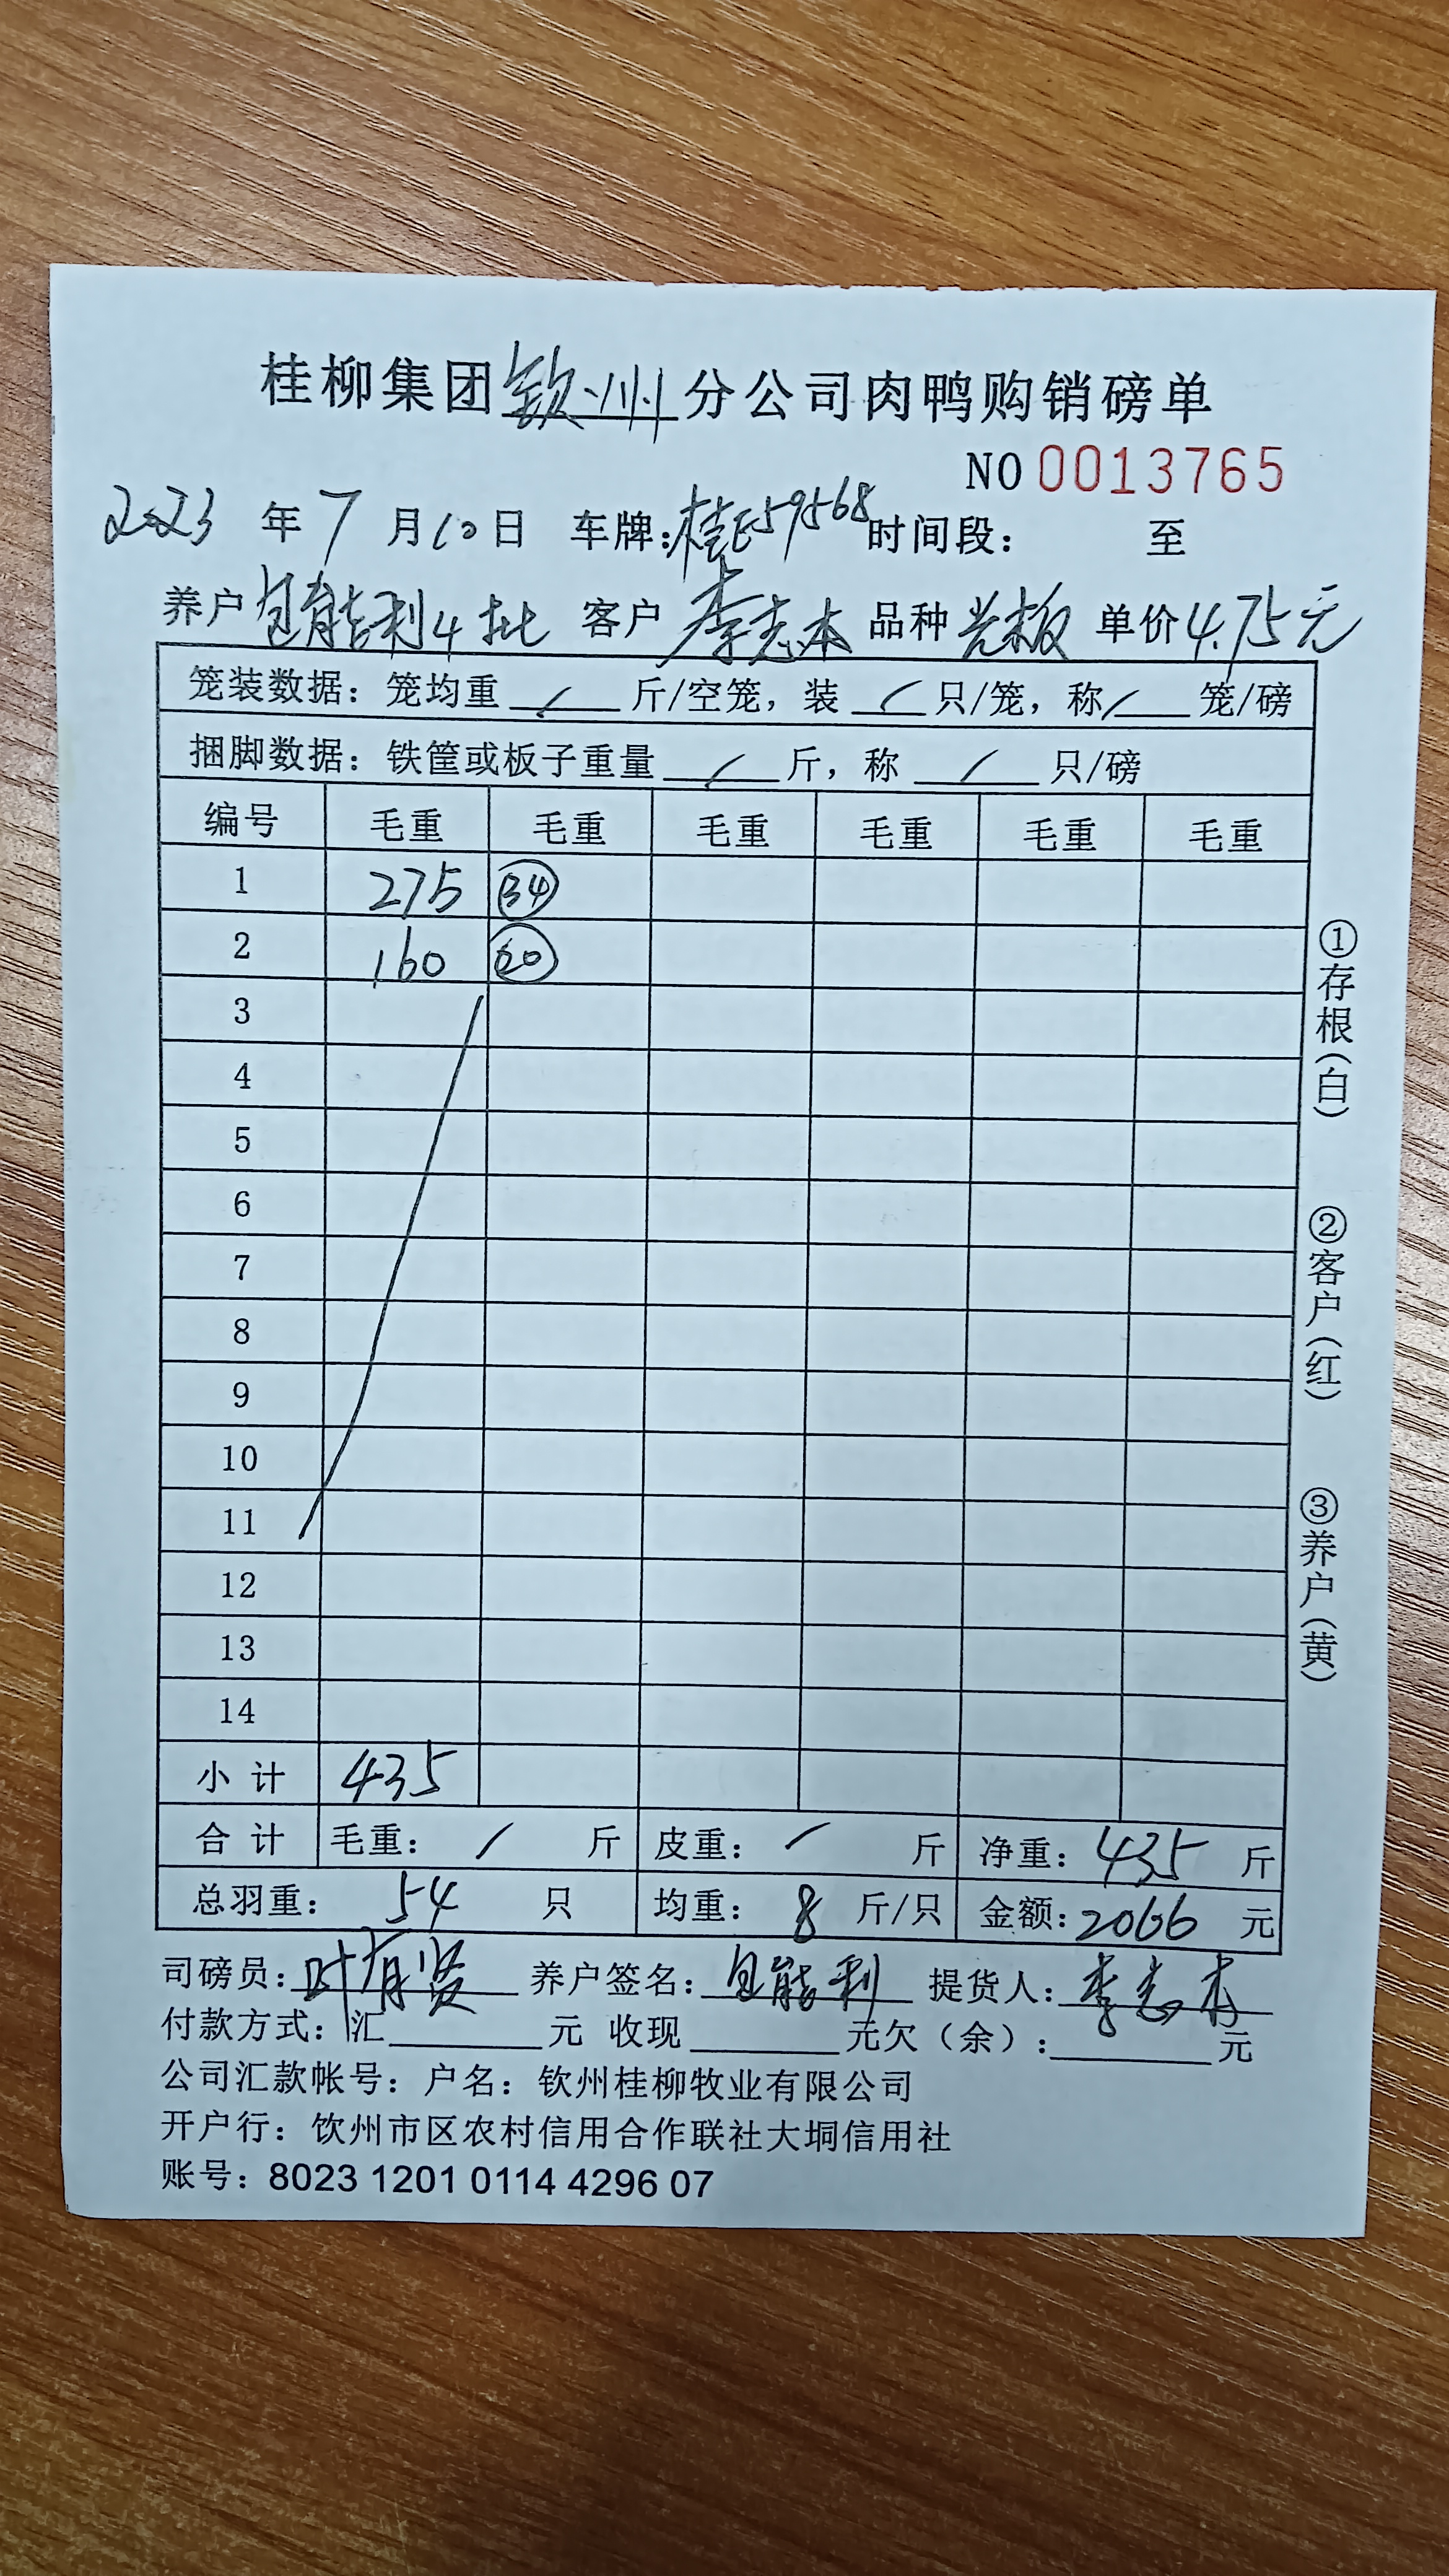 桂柳集团钦州分公司肉鸭购销磅单
NO 0013765
2023 年 7 月 10 日 车牌:桂E59568 时间段: 至
养户 包能利4批 客户 李志本 品种 光板 单价 4.75元
笼装数据: 笼均重 / 斤/空笼, 装 / 只/笼, 称 / 笼/磅
捆脚数据: 铁筐或板子重量 / 斤, 称 / 只/磅
编号 毛重 毛重 毛重 毛重 毛重 毛重
1 275 34
2 160 20
3
4
5
6
7
8
9
10
11
12
13
14
小计 435
合计 毛重: / 斤 皮重: / 斤 净重: 435 斤
总羽重: 54 只 均重: 8 斤/只 金额: 2066 元
司磅员: 叶有贤 养户签名: 包能利 提货人: 李志本
付款方式: 汇 元 收现 元欠(余): 元
公司汇款帐号: 户名: 钦州桂柳牧业有限公司
开户行: 钦州市区农村信用合作联社大垌信用社
账号: 8023 1201 0114 4296 07
①存根(白)
②客户(红)
③养户(黄)